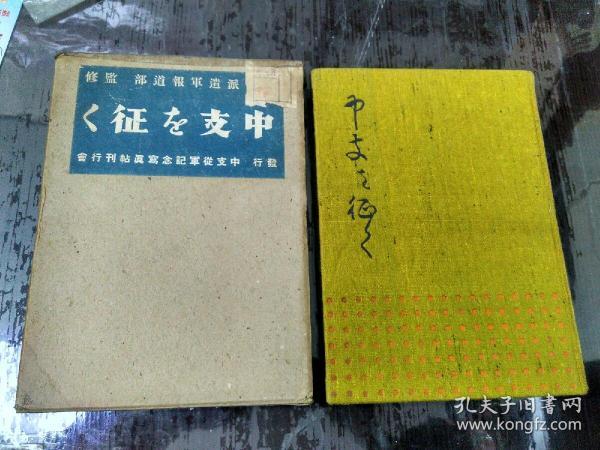 派遣軍報道部 監修
中支を征く
發行 中支從軍記念寫眞帖刊行會
中支を征く
孔夫子旧书网
www.kongfz.com